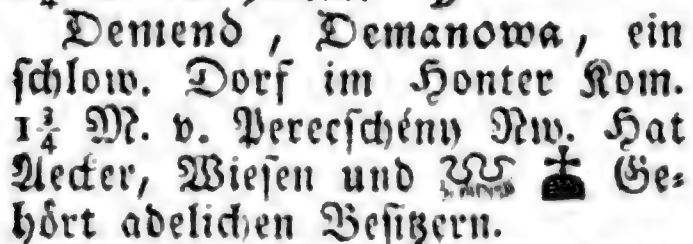 Demend, Demanowa, ein
schlow. Dorf im Honter Kom.
1¾ M. v. Pereeschény Nw. Hat
Aecker, Wiesen und Ge-
hört adelichen Besitzern.